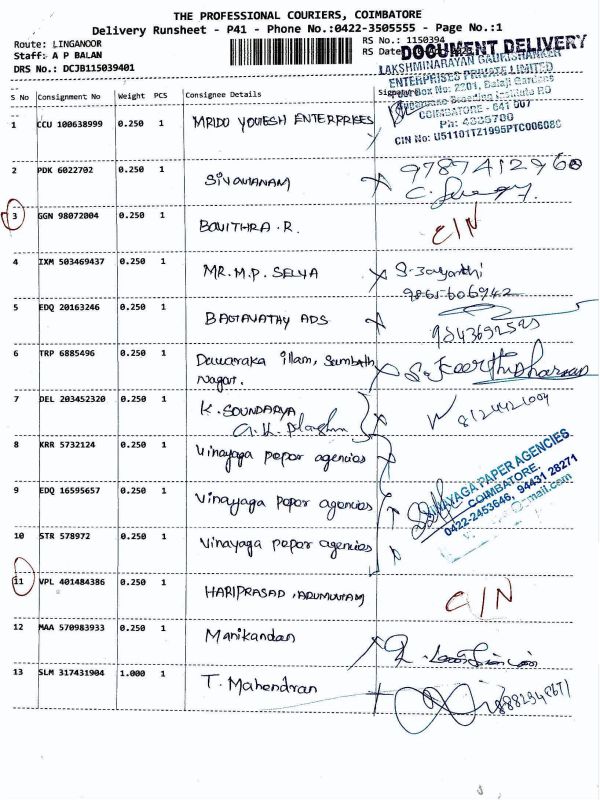 THE PROFESSIONAL COURIERS, COIMBATORE
Delivery Runsheet - P41 - Phone No.:0422-3505555 - Page No.:1
Route: LINGANOOR
RS No.: 1150394
Staff: A P BALAN
RS Date
DOCUMENT DELIVERY
DRS No.: DCJB115039401
LAKSHMINARAYAN
ENTERPRISES PRIVATE LIMITED
Box No: 2201, Balaji Gardens
RO
COIMBATORE - 641 007
CIN No: U51101TZ1995PTC006080
S No Consignment No Weight PCS Consignee Details
1 CCU 100638999 0.250 1 ENTERPRISES
2 PDK 6022702 0.250 1 SIVAMANAM 9787412960
3 GGN 98072004 0.250 1 BOVITHRA . R. C/N
4 IXM 503469437 0.250 1 MR. M.P. SELVA S. Jayanthi
9865606942
5 EDQ 20163246 0.250 1 BAGTAVATHY ADS 9843692525
6 TRP 6885496 0.250 1 illam,
Nagar.
7 DEL 203452320 0.250 1 K. SOUNDARYA
8 KRR 5732124 0.250 1 Vinayaga papar agencies
9 EDQ 16595657 0.250 1 Vinayaga papar agancies
VINAYAGA PAPER AGENCIES
COIMBATORE.
0422-2453646, 94431 28271
10 STR 578972 1 Vinayaga papar agencies
11 VPL 401484386 0.250 1 HARIPRASAD C/N
12 MAA 570983933 0.250 1 Manikandan
13 SLM 317431904 1.000 1 T. Mahendran